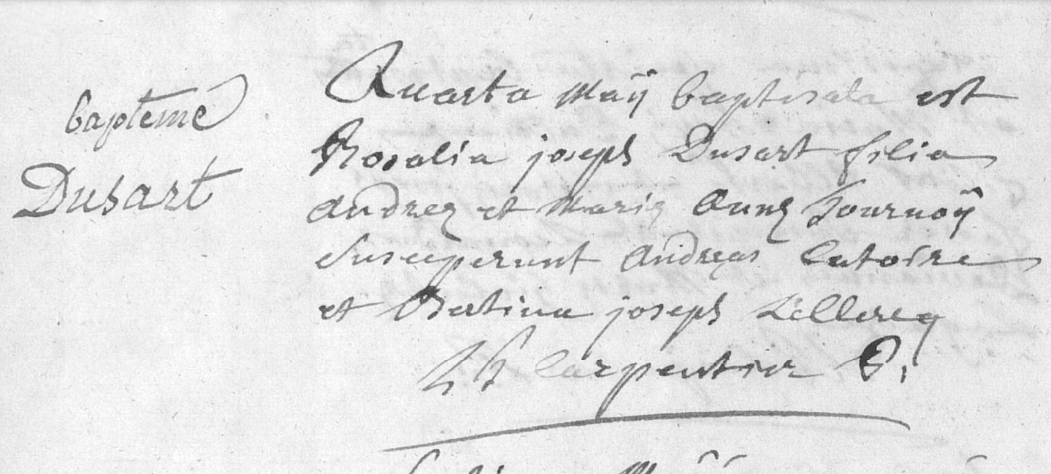 baptême
Dusart
Quarta Maÿ baptisata est
Rosalia joseph Dusart filia
Andreæ et Mariæ Annæ Journoÿ
Susceperunt Andreas Latoire
et Bertina joseph Leclercq
carpentier P.